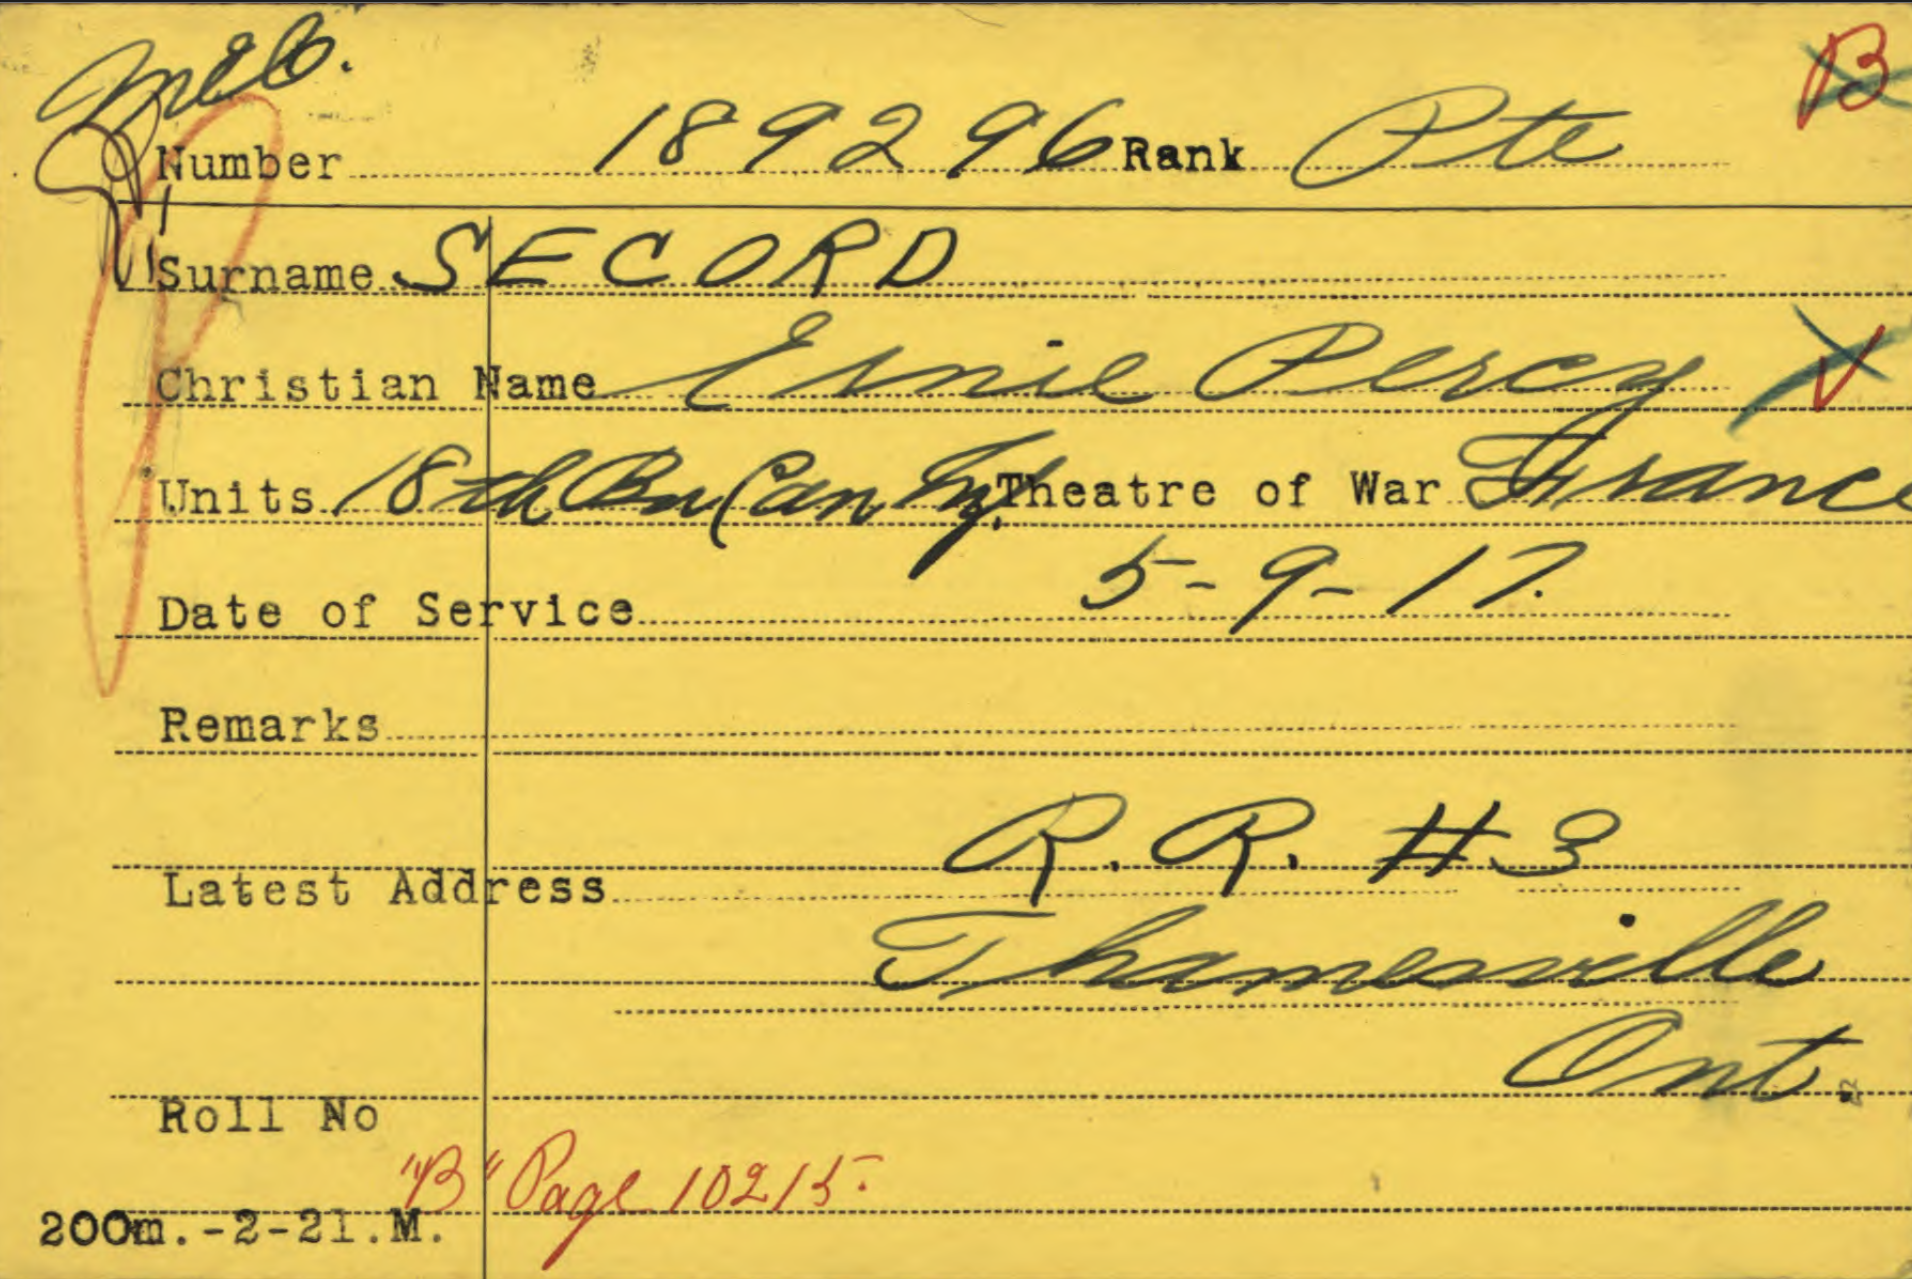 Number 189296 Rank Pte
B
Surname SECORD
Christian Name Ernie Percy
Units 18th Bn Can Inf. Theatre of War France
Date of Service 5-9-17.
Remarks
Latest Address R. R. #3
Thamesville
Ont.
Roll No
"B" Page 10215.
200m.-2-21.M.